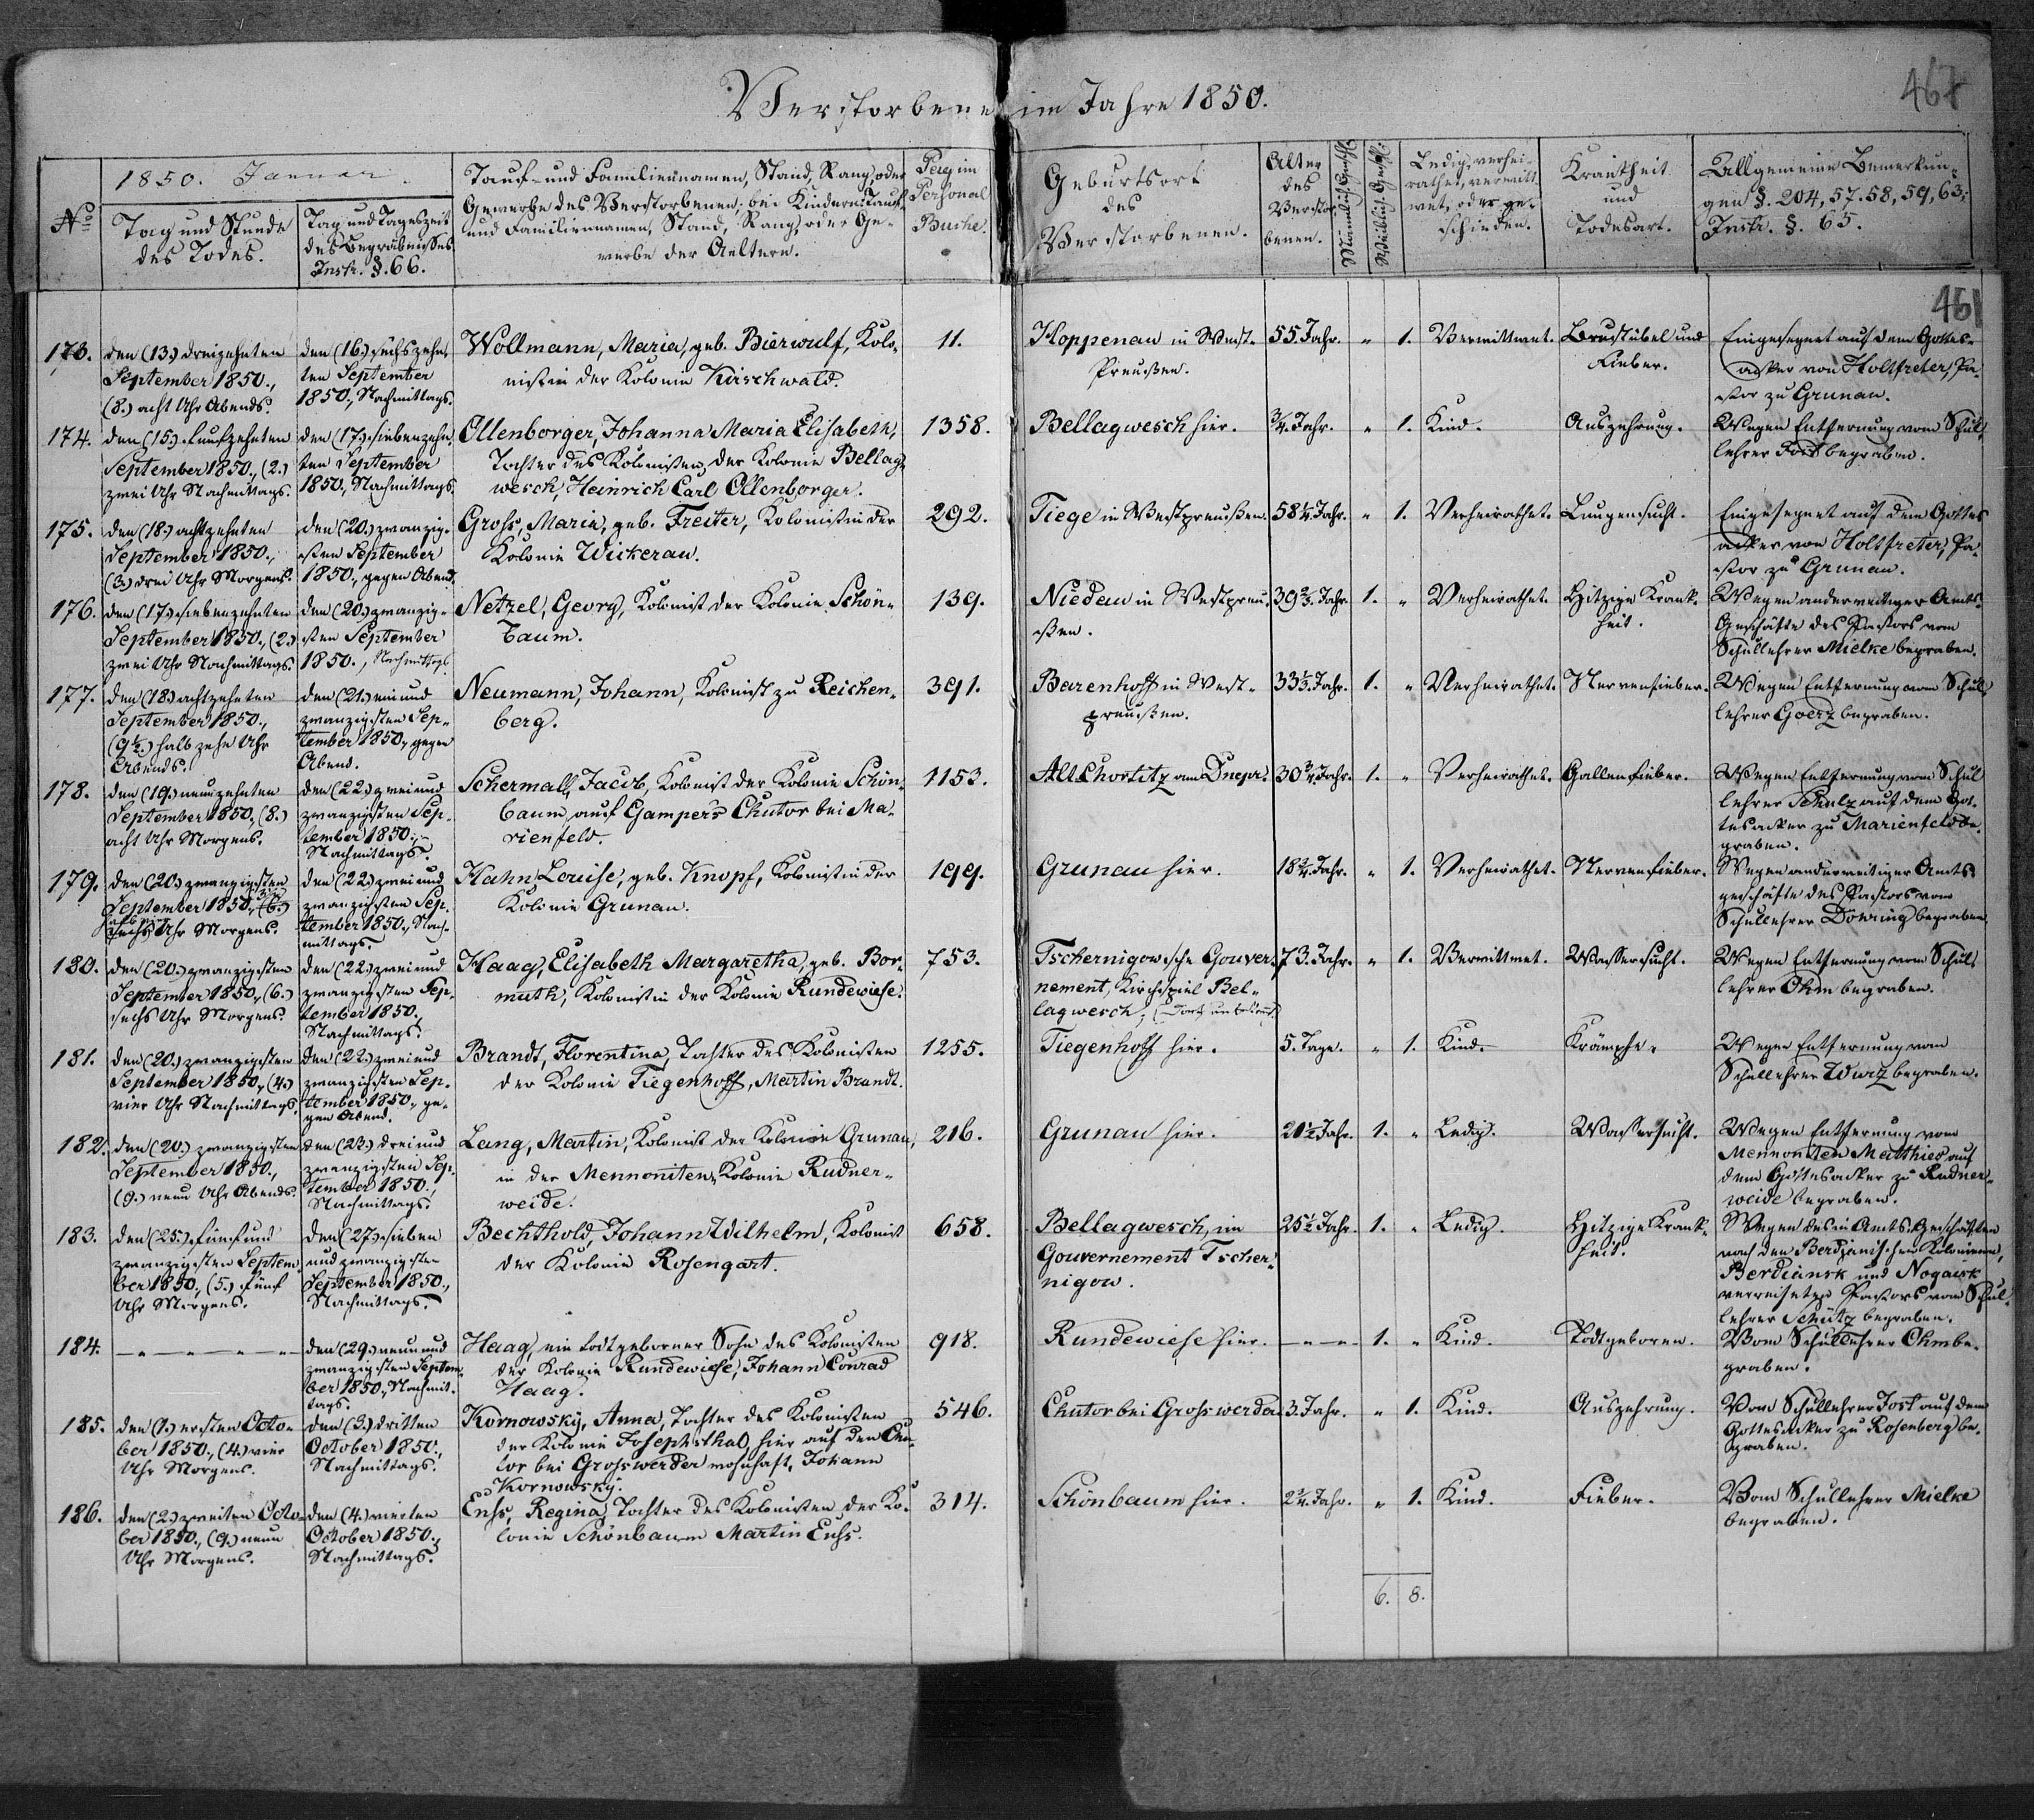 Verstorbene im Jahre 1850.
467
1850. Januar.
No
Tag und Stunde
des Todes.
Tag und Tageszeit
des Begräbnisses
Instr. §. 66.
Tauf- und Familiennamen, Stand, Rang, oder
Gewerbe des Verstorbenen; bei Kindern: Tauf-
und Familiennamen, Stand, Rang, oder Ge-
werbe der Aeltern.
Pag im
Personal
Buche.
Geburtsort
des
Verstorbenen.
Alter
des
Verstor-
benen.
Männlich. Geschl.
Weiblich. Geschl.
Ledig, verhei-
rathet, verwitt-
wet, oder ge-
schieden.
Krankheit
und
Todesart.
Allgemeine Bemerkun-
gen §. 204, 57. 58, 59, 63;
Instr. §. 65.
461
173.
den (13.) dreizehnten
September 1850.,
(8.) acht Uhr Abends.
den (16.) sechszehn-
ten September
1850., Nachmittags.
Wollmann, Maria, geb. Bierwulf, Kolo-
nistin der Kolonie Kirschwald.
11.
Koppenau in West-
Preußen.
55. Jahr.
"
1.
Verwittwet.
Brustübel und
Fieber.
Eingesegnet auf dem Gottes-
acker von Holtfreter, Pa-
stor zu Grunau.
174.
den (15.) funfzehnten
September 1850., (2.)
zwei Uhr Nachmittags.
den (17.) siebenzehn-
ten September
1850., Nachmittags.
Ollenborger, Johanna Maria Elisabeth,
Tochter des Kolonisten der Kolonie Bellag-
wesch, Heinrich Carl Ollenborger.
1358.
Bellagwesch hier.
¾. Jahr.
"
1.
Kind.
Auszehrung.
Wegen Entfernung vom Schul-
lehrer Jost begraben.
175.
den (18.) achtzehnten
September 1850.,
(3.) drei Uhr Morgens.
den (20.) zwanzig-
sten September
1850., gegen Abend.
Gross, Maria, geb. Freiter, Kolonistin der
Kolonie Wickerau.
292.
Tiege in Westpreußen.
58¼. Jahr.
"
1.
Verheirathet.
Lungensucht.
Eingesegnet auf dem Gottes
acker von Holtfreter, Pa-
stor zu Grunau.
176.
den (17.) siebenzehnten
September 1850., (2.)
zwei Uhr Nachmittags.
den (20.) zwanzig-
sten September
1850., Nachmittags
Netzel, Georg, Kolonist der Kolonie Schön-
baum.
139.
Niedau in Westpreu-
ßen.
39⅔. Jahr.
1.
"
Verheirathet.
Hitzige Krank-
heit.
Wegen anderweitiger Amts-
Geschäfte des Pastors vom
Schullehrer Mielke begraben.
177.
den (18.) achtzehnten
September 1850.,
(9½.) halb zehn Uhr
Abends.
den (21.) ein und
zwanzigsten Sep-
tember 1850., gegen
Abend.
Neumann, Johann, Kolonist zu Reichen-
berg.
391.
Barenhoff in West-
preußen.
33⅓. Jahr.
1.
"
Verheirathet.
Nervenfieber.
Wegen Entfernung vom Schul
lehrer Goerz begraben.
178.
den (19.) neunzehnten
September 1850., (8.)
acht Uhr Morgens.
den (22.) zwei und
zwanzigsten Sep-
tember 1850.,
Nachmittags.
Schermall, Jacob, Kolonist der Kolonie Schön-
baum, auf Gamper's Chutor bei Ma-
rienfeld.
1153.
Alt Chortitz am Dnepr.
30¾. Jahr.
1.
"
Verheirathet.
Gallenfieber.
Wegen Entfernung vom Schul
lehrer Schulz auf dem Got-
tesacker zu Marienfeld be-
graben.
179.
den (20.) zwanzigsten
September 1850., (6.)
sechs Uhr Morgens.
den (22.) zwei und
zwanzigsten Sep-
tember 1850., Nach-
mittags.
Hahn Louise, geb. Knopf, Kolonistin der
Kolonie Grunau.
199.
Grunau hier.
18¾. Jahr.
"
1.
Verheirathet.
Nervenfieber.
Wegen anderweitiger Amts-
geschäfte des Pastors vom
Schullehrer Döwring begraben
180.
den (20.) zwanzigsten
September 1850., (6.)
sechs Uhr Morgens.
den (22.) zwei und
zwanzigsten Sep-
tember 1850.,
Nachmittags.
Haag, Elisabeth Margaretha, geb. Bor-
muth, Kolonistin der Kolonie Rundewiese.
753.
Tschernigowsche Gouver-
nement, Kirchspiel Bel-
lagwesch; (Dorf unbekannt)
73. Jahr.
"
1.
Verwittwet.
Wassersucht.
Wegen Entfernung vom Schul-
lehrer Ohm begraben.
181.
den (20.) zwanzigsten
September 1850., (4.)
vier Uhr Nachmittags.
den (22.) zwei und
zwanzigsten Sep-
tember 1850., ge-
gen Abend.
Brandt, Florentina, Tochter des Kolonisten
der Kolonie Tiegenhoff, Martin Brandt.
1255.
Tiegenhoff hier.
5. Tage.
"
1.
Kind.
Krämpfe.
Wegen Entfernung vom
Schullehrer Wurz begraben.
182.
den (20.) zwanzigsten
September 1850.,
(9.) neun Uhr Abends.
den (23.) drei und
zwanzigsten Sep-
tember 1850.,
Nachmittags.
Lang, Martin, Kolonist der Kolonie Grunau,
in der Mennoniten, Kolonie Rudner-
weide.
216.
Grunau hier.
21½ Jahr.
1.
"
Ledig.
Wassersucht.
Wegen Entfernung vom
Mennoniten Matthies auf
dem Gottesacker zu Rudner-
weide begraben.
183.
den (25.) fünf und
zwanzigsten Septem-
ber 1850., (5.) fünf
Uhr Morgens.
den (27.) sieben
und zwanzigsten
September 1850.,
Nachmittags.
Bechthold, Johann Wilhelm, Kolonist
der Kolonie Rosengart.
658.
Bellagwesch, im
Gouvernement Tscher-
nigow.
25½ Jahr.
1.
"
Ledig.
Hitzige Krank-
heit.
Wegen des in Amts-Geschäften
nach den Berdjanischen Kolonieen,
Berdiansk und Nogaisk
verreiseten Pastors vom Schul-
lehrer Schütz begraben.
184.
— " — " — " —
den (29.) neun und
zwanzigsten Septem-
ber 1850., Nachmit-
tags.
Haag, ein todtgeborner Sohn des Kolonisten
der Kolonie Rundewiese, Johann Conrad
Haag.
918.
Rundewiese hier.
— " — " —
1.
"
Kind.
Todtgeboren.
Vom Schullehrer Ohm be-
graben.
185.
den (1.) ersten Octo-
ber 1850., (4.) vier
Uhr Morgens.
den (3.) dritten
October 1850.,
Nachmittags.
Kornowsky, Anna, Tochter des Kolonisten
der Kolonie Josephsthal, hier auf den Chu-
tor bei Grosswerder wohnhaft, Johann
Kornowsky.
546.
Chutor bei Grosswerder
3. Jahr.
"
1.
Kind.
Auszehrung.
Vom Schullehrer Jost auf dem
Gottesacker zu Rosenberg be-
graben.
186.
den (2.) zweiten Octo-
ber 1850., (9.) neun
Uhr Morgens.
den (4.) vierten
October 1850.,
Nachmittags.
Enhs, Regina, Tochter des Kolonisten der Ko-
lonie Schönbaum Martin Enhs.
314.
Schönbaum hier.
2¾. Jahr.
"
1.
Kind.
Fieber.
Vom Schullehrer Mielke
begraben.
6.
8.